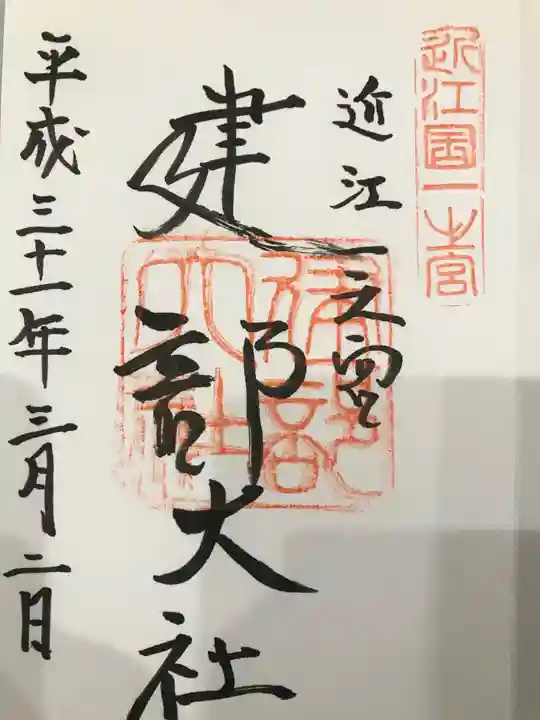 近江国一之宮
近江一之宮
建部大社
平成三十一年三月二日
建部大社